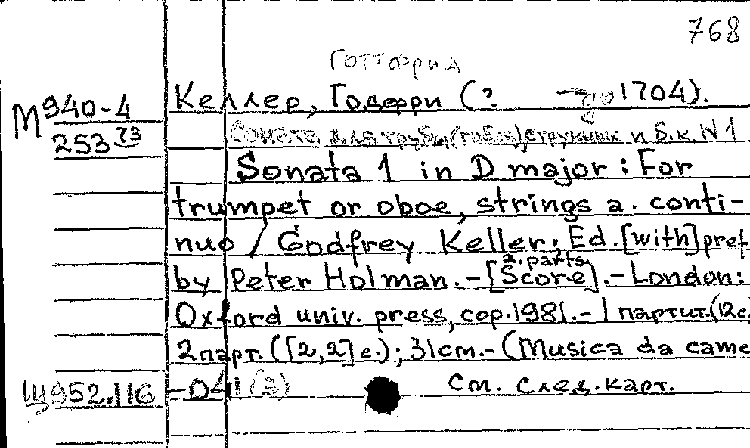 768
Готтфрид
Келлер, Годфри (? – до 1704).
М940-4
253 73
Соната для трубы (гобоя), струнных и б.к. N1
Sonata 1 in D major : For
trumpet or oboe, strings a. conti-
nuo / Godfrey Keller; Ed. [with] pref
by Peter Holman. – [Score a. parts]. – London:
Oxford univ. press, cop. 1981. – 1 партит. (12с.
2 парт. ([2,2]с.); 31см. – (Musica da came
Щ952.116 -041(3)
См. след. карт.